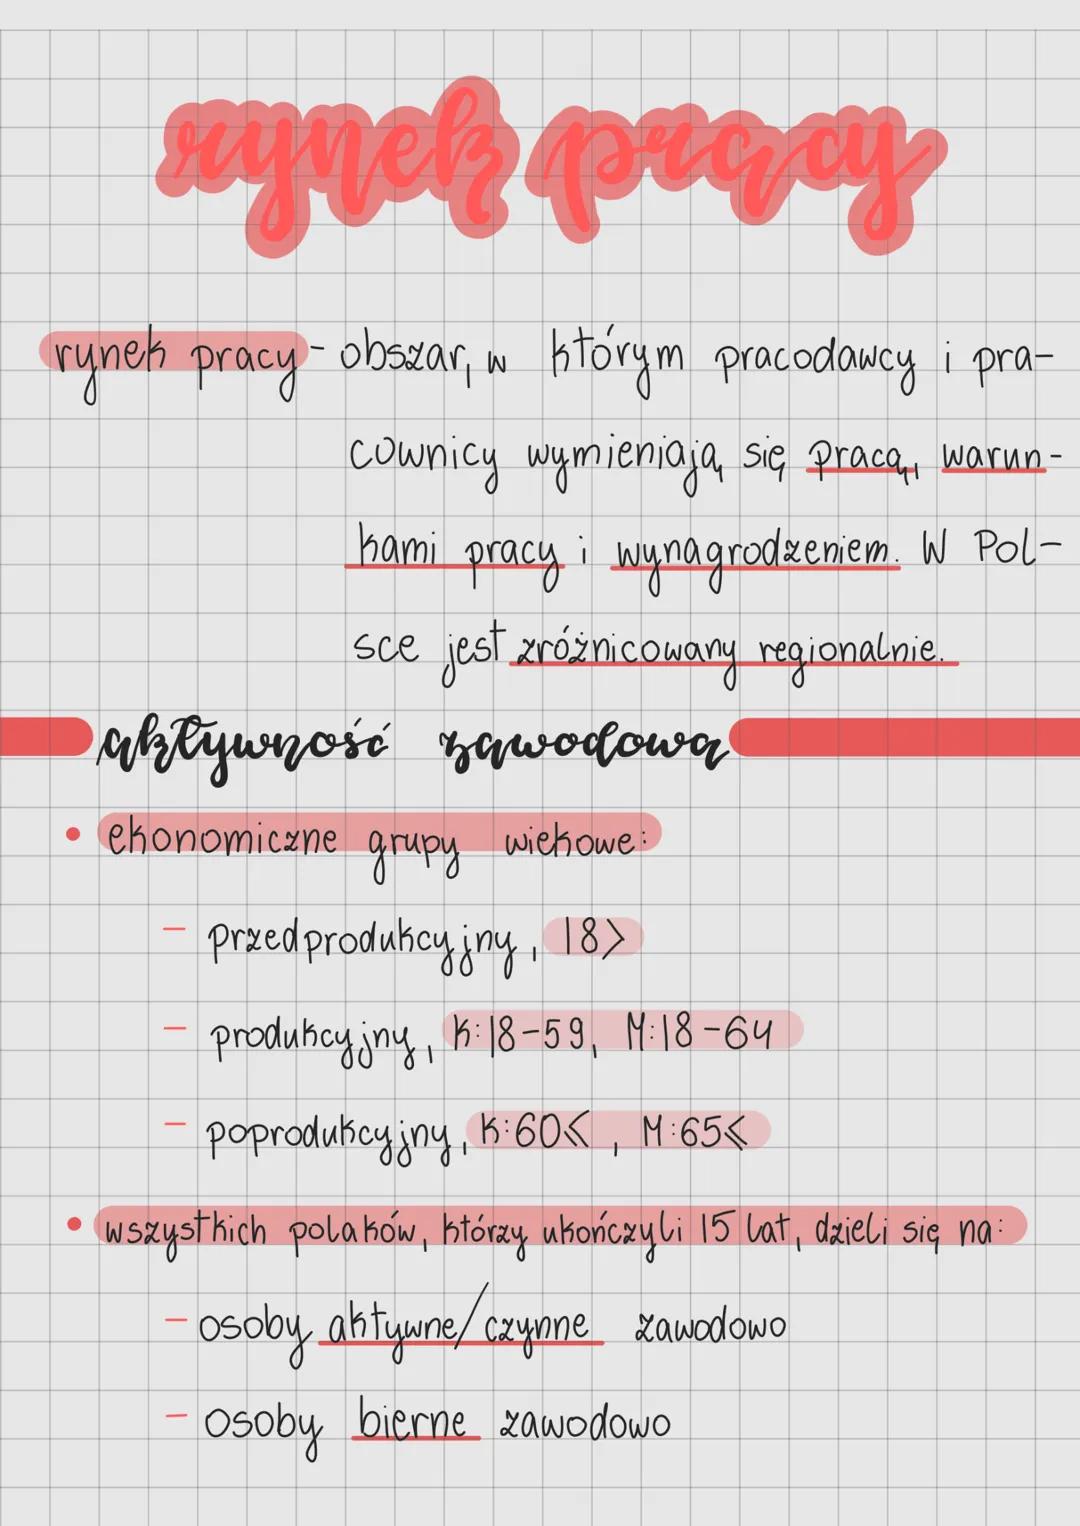 rynek pracy
rynek pracy - obszar, w którym pracodawcy i pra-
cownicy wymieniają się pracą, warun-
kami pracy i wynagrodzeniem. W Pol-
sce jest zróżnicowany regionalnie.
aktywność zawodowa
• ekonomiczne grupy wiekowe:
- przedprodukcyjny, 18>
- produkcyjny, K:18-59, M:18-64
- poprodukcyjny, K:60⩽, M:65⩽
• wszystkich polaków, którzy ukończyli 15 lat, dzieli się na:
- osoby aktywne/czynne zawodowo
- osoby bierne zawodowo